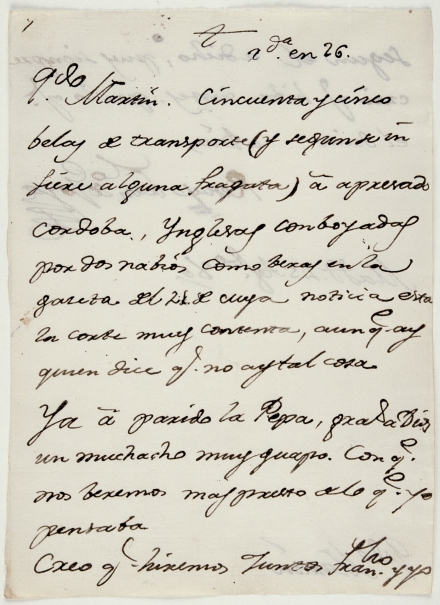 r.da en 26.
q.do Martin. Cincuenta y cinco
belas de transporte (y segun se in
fiere alguna fragata) ā apresado
cordoba, Ynglesas conboyadas
por dos nabios como beras en la
gaceta del 21 de cuya noticia esta
la corte muy contenta, aunq.e ay
quien dice q.e no ay tal cosa
Ya ā parido la Pepa, gra.s a Dios
un muchacho muy guapo. Con q.e
nos beremos mas presto de lo q.e yo
pensaba
Creo q.e hiremos Juntos Fran.cho y yo